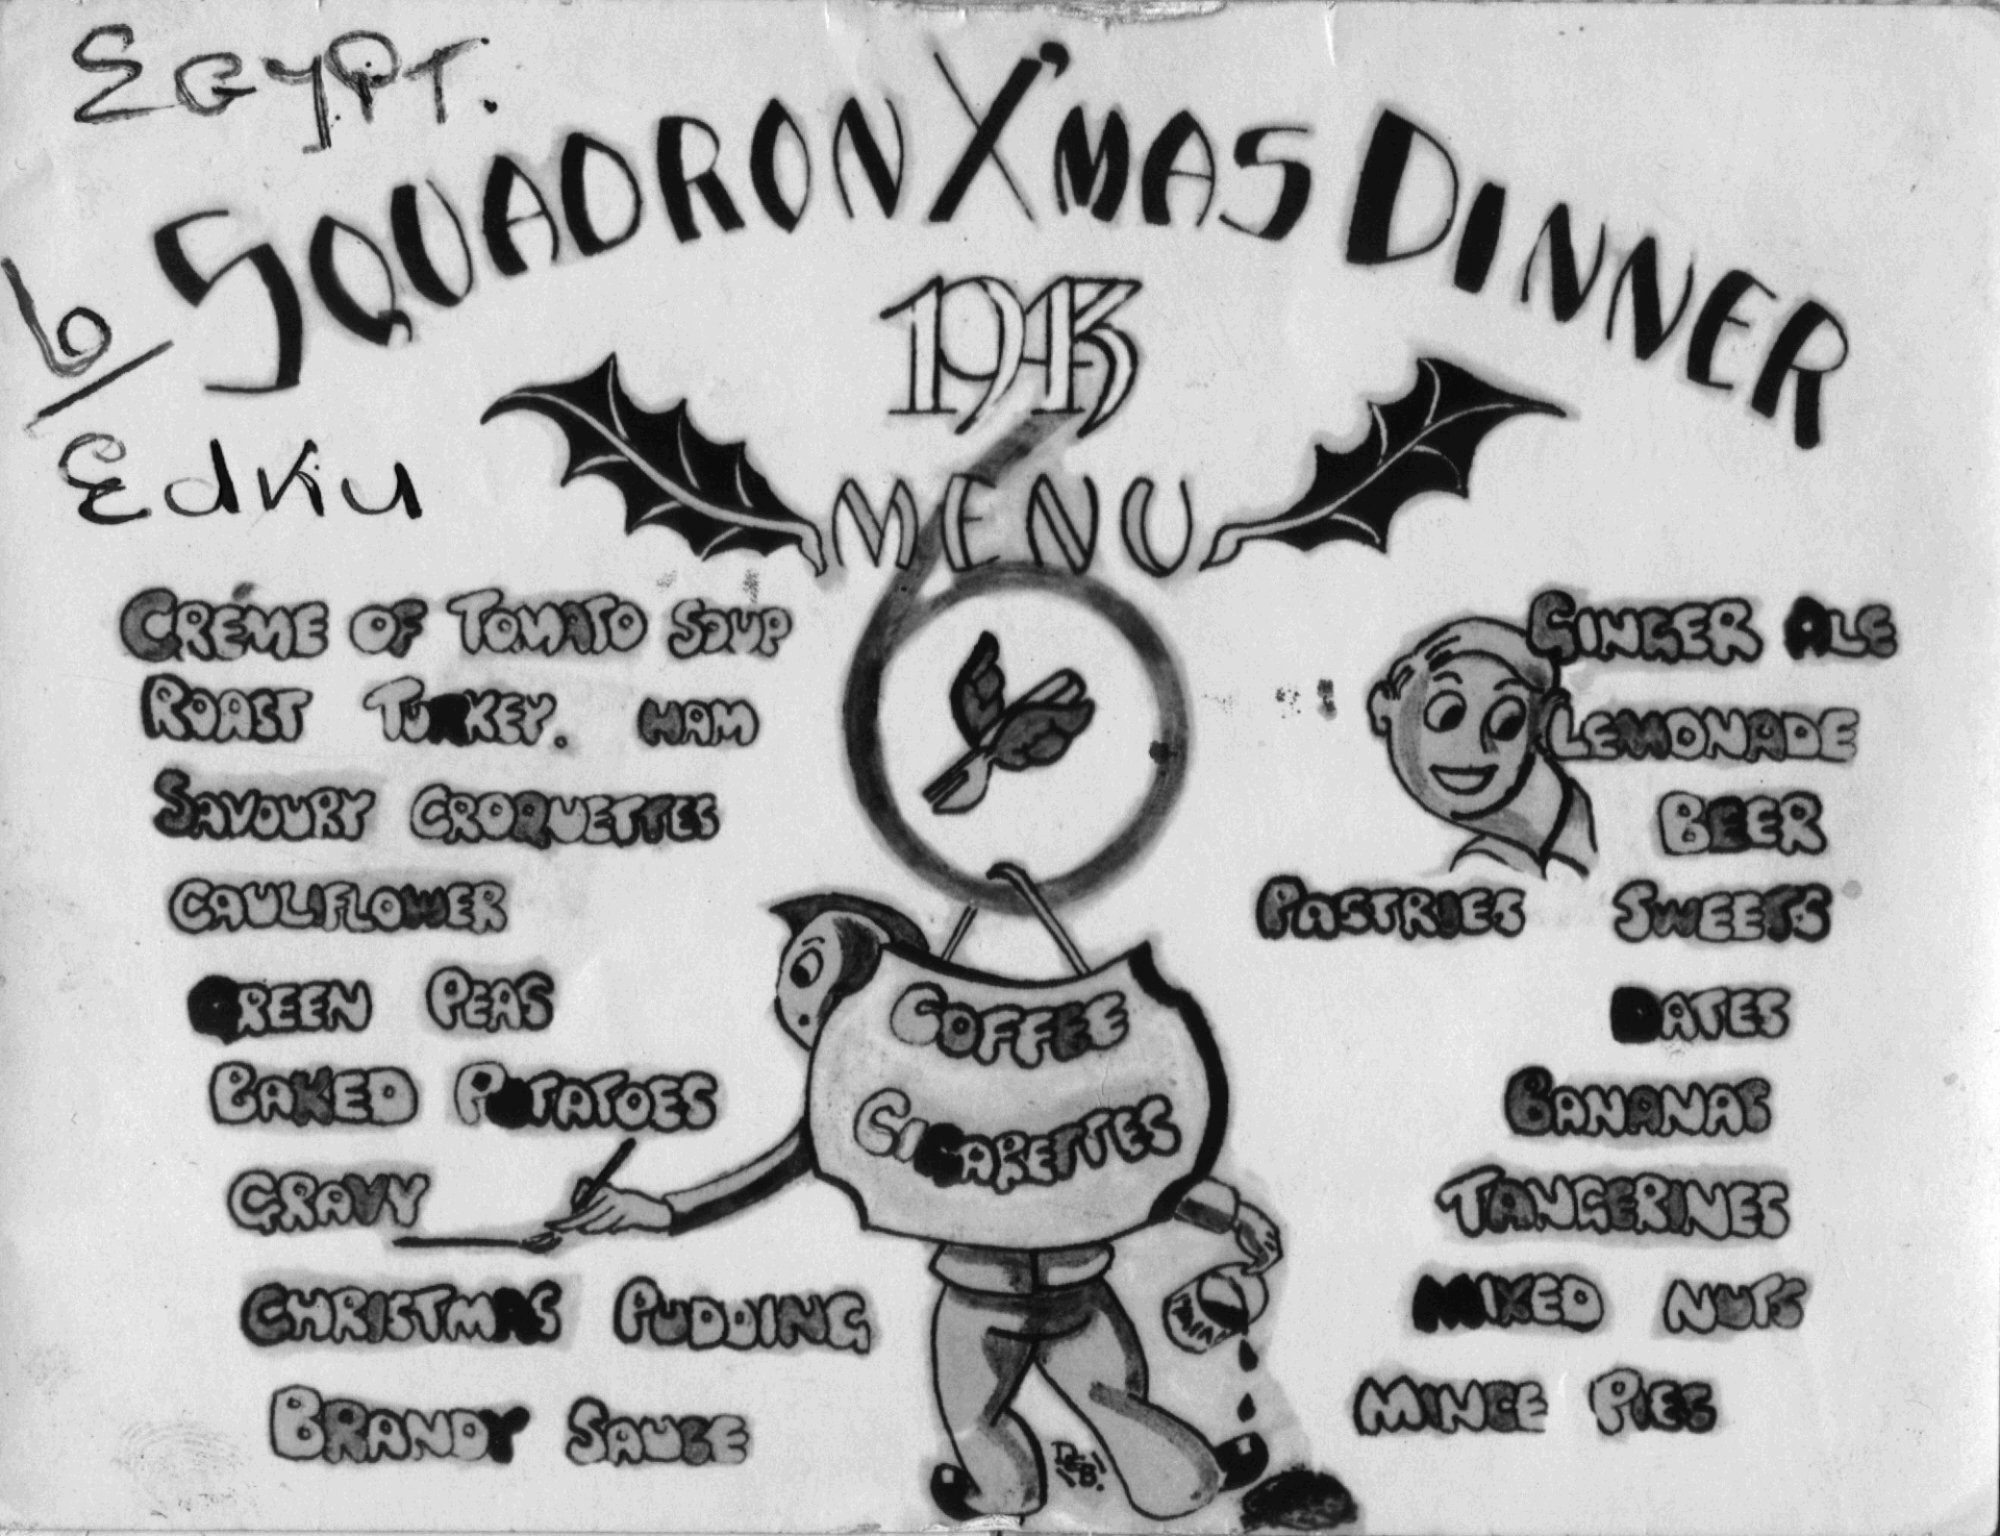 EGYPT.
6 SQUADRON X'MAS DINNER
1943
EDKU
MENU
6
CRÉME OF TOMATO SOUP
ROAST TURKEY. HAM
SAVOURY CROQUETTES
CAULIFLOWER
GREEN PEAS
BAKED POTATOES
GRAVY
CHRISTMAS PUDDING
BRANDY SAUCE
COFFEE
CIGARETTES
GINGER ALE
LEMONADE
BEER
PASTRIES SWEETS
DATES
BANANAS
TANGERINES
MIXED NUTS
MINCE PIES